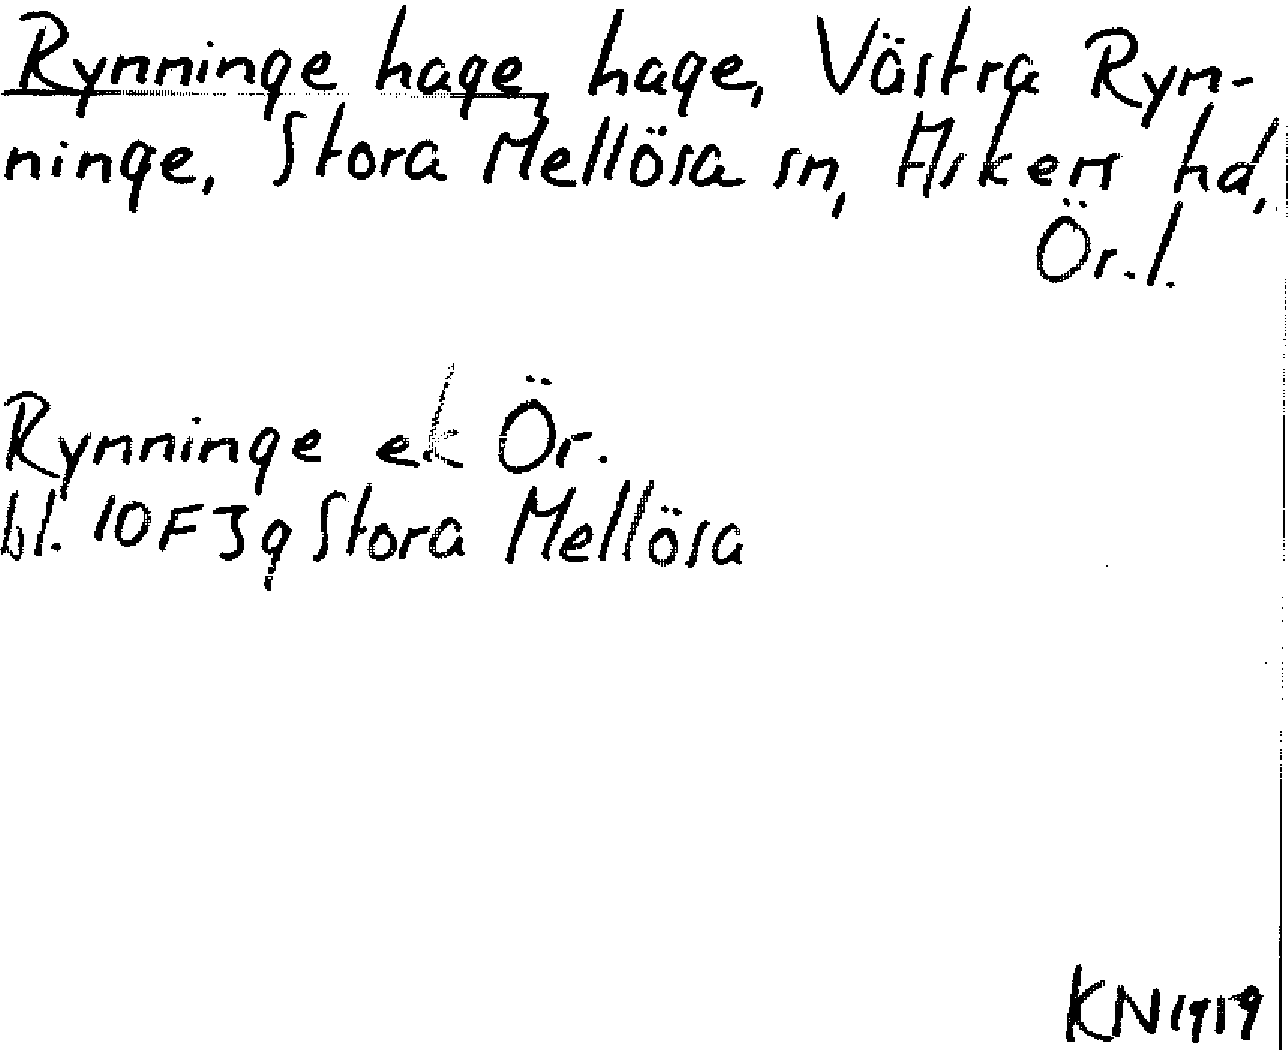 Rynninge hage, hage, Västra Ryn-
ninge, Stora Mellösa sn, Askers hd,
Ör.l.
Rynninge ek Ör.
bl. 10F3g Stora Mellösa
KN1919